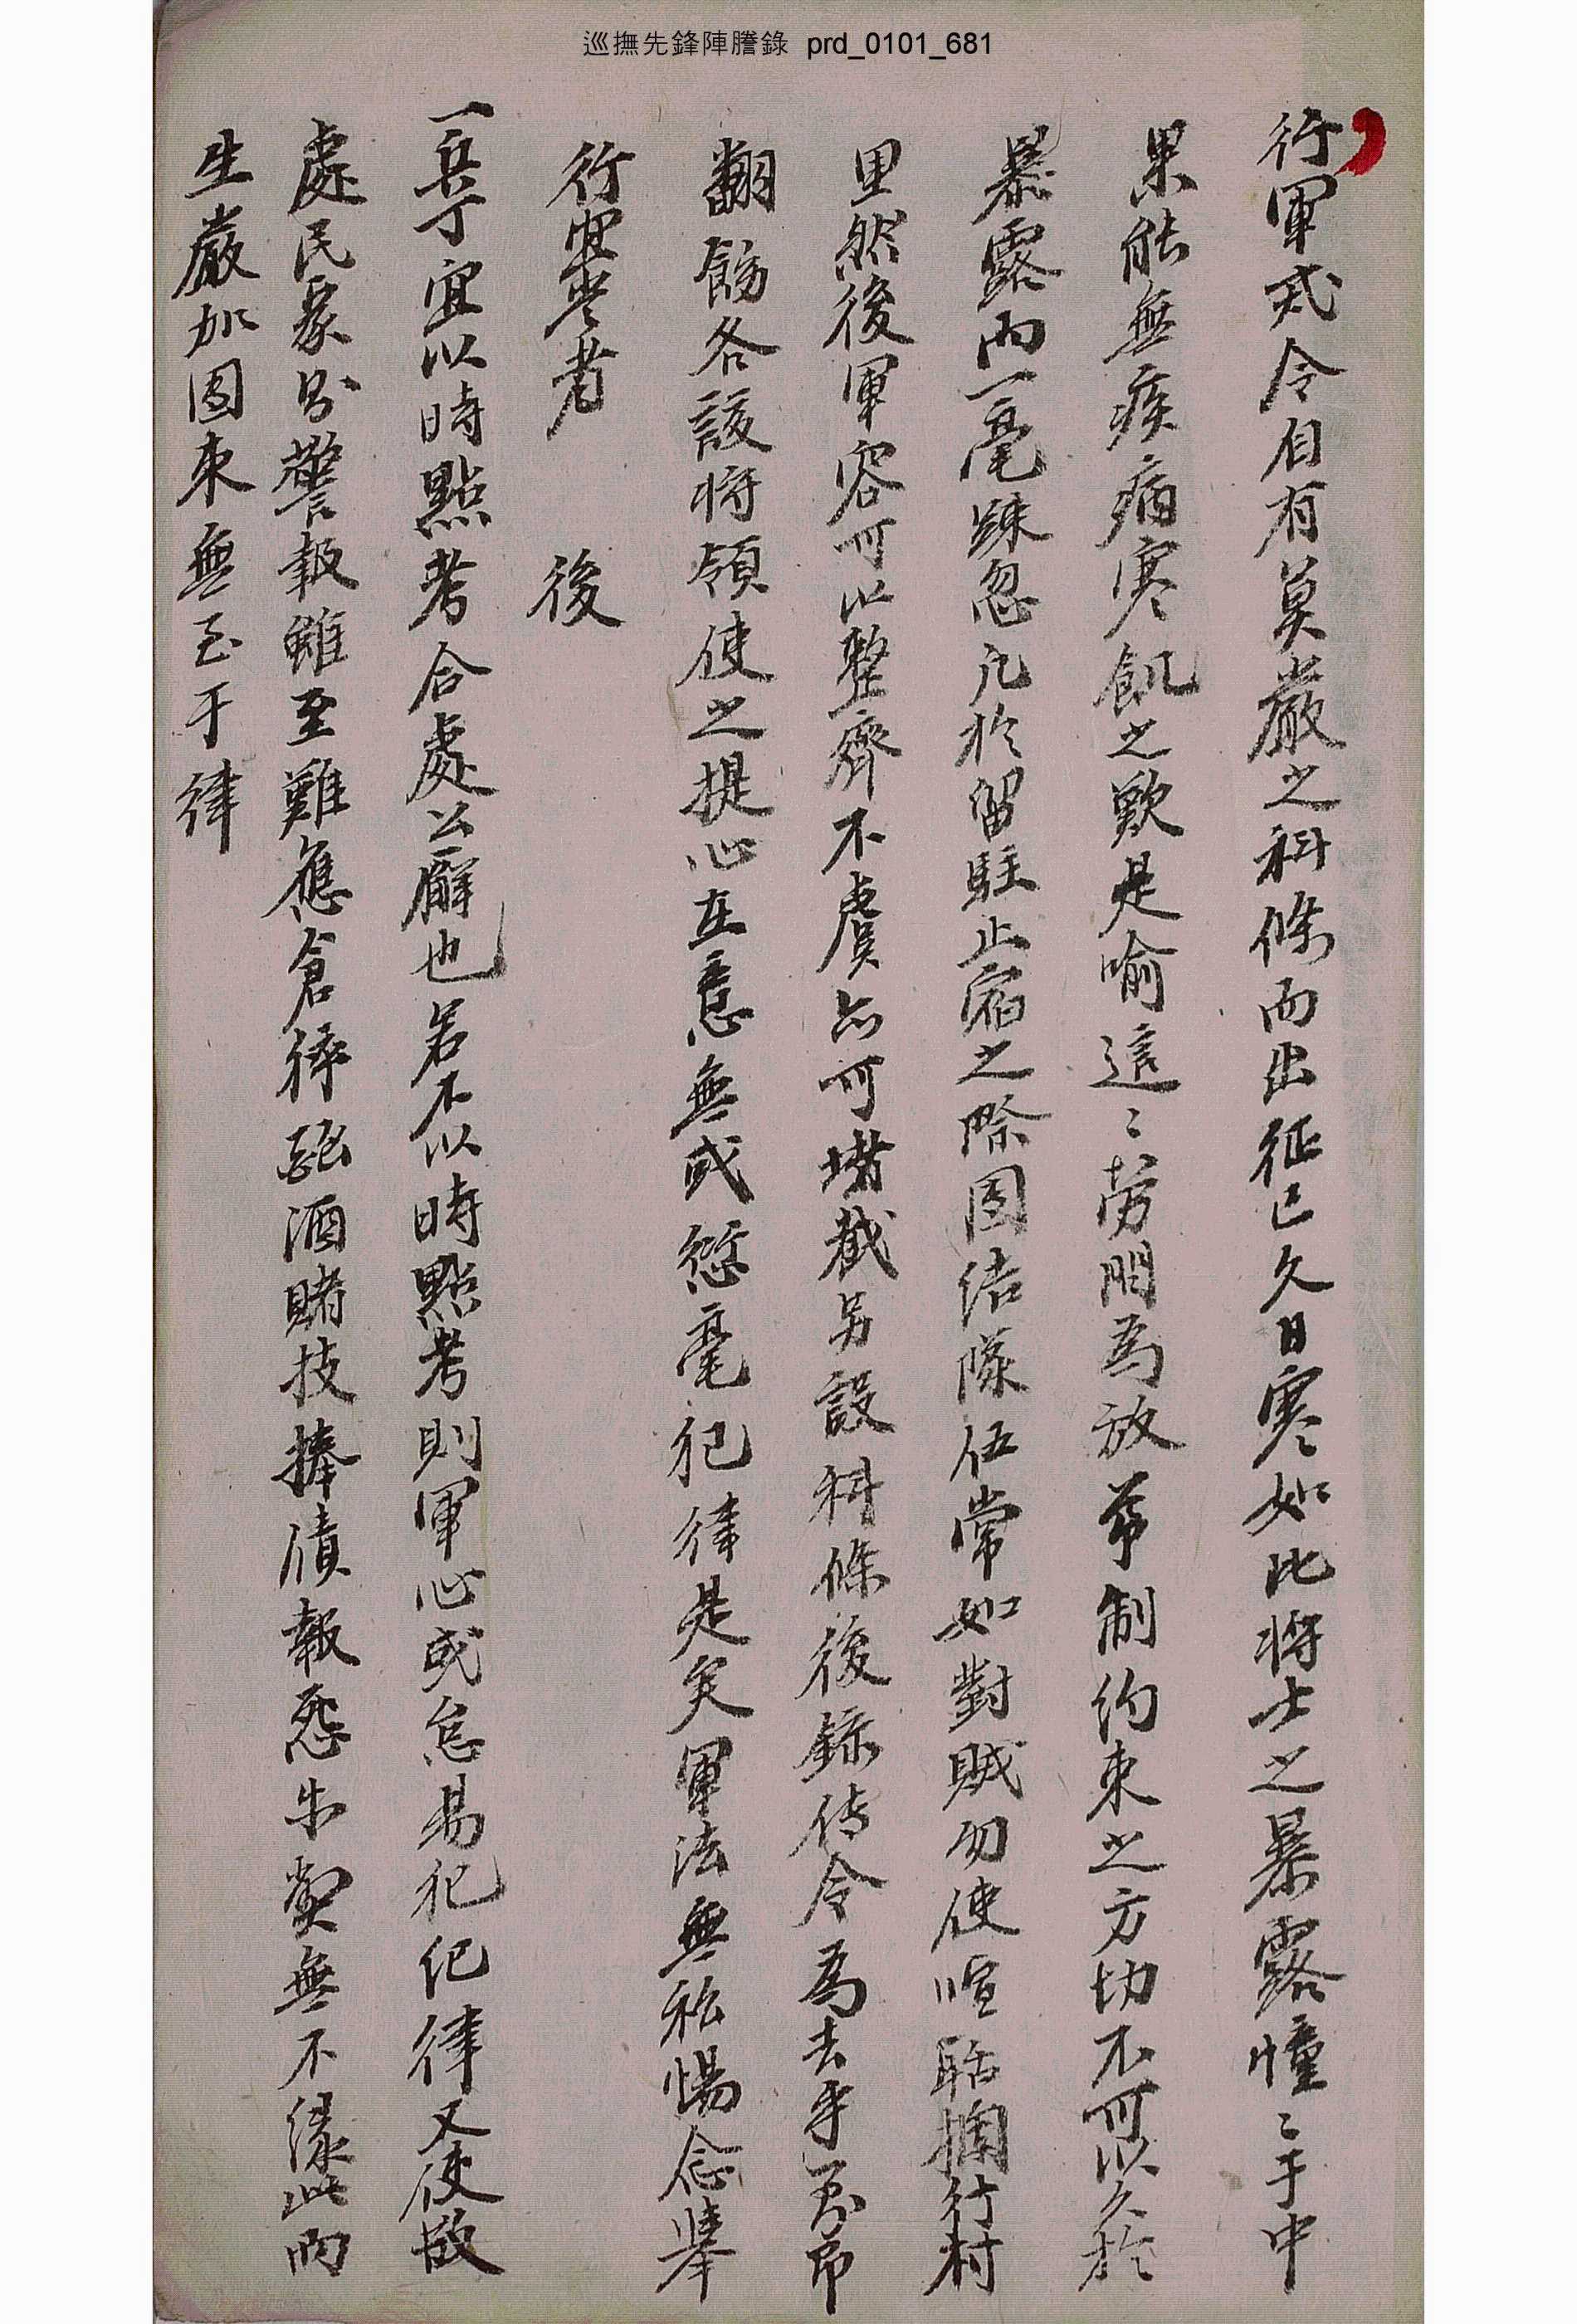 巡撫先鋒陣謄錄 prd_0101_681
行軍式令自有莫嚴之科條而出征已久日寒如此將士之暴露憧〻于中
果能無疾病寒飢之歎是喩這〻勞問爲放等制約束之方切不可以久於
暴露而一毫踈忽凡於留駐止宿之際團結隊伍常如對賊勿使喧聒攔行村
里然後軍容可以整齊不虞亦可堵截另設科條後錄傳令爲去乎到卽
翻飭各該將領使之提心在意無或愆毫犯律是矣軍法無私惕念擧
行宜當者 後
一兵丁宜以時點考合處公廨也若不以時點考則軍心或怠易犯紀律又使散
處民家則警報雖至難應倉猝酗酒賭技捧債報怨生釁無不緣此而
生嚴加團束無至于律